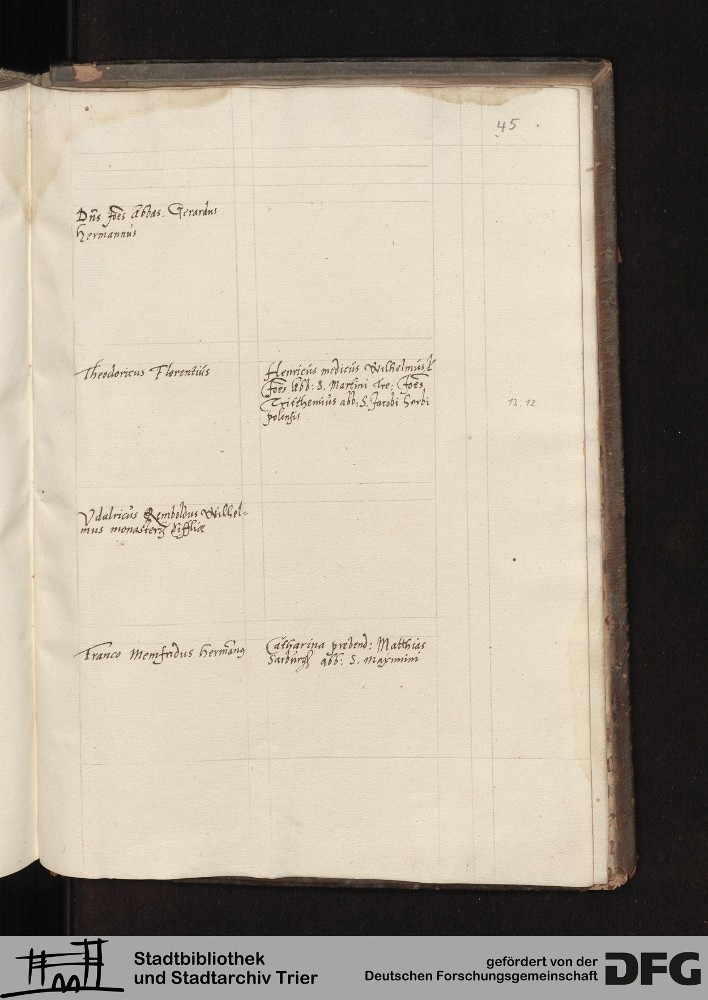 45
Dns Joes Abbas. Gerardus
Hermannus
Theodoricus Florentius
Henricus medicus Wilhelmus
Joes Abb: S. Martini Tre: Joes
Tritthemius abb: S. Jacobi Herbi
polensis
12.12
Udalricus Remboldus Wilhel-
mus monasterij Eiffliae
Franco Memfridus Hermanus
Catharina prebend: Matthias
Sarburgh abb: S. Maximini
Stadtbibliothek
und Stadtarchiv Trier
gefördert von der
Deutschen Forschungsgemeinschaft
DFG